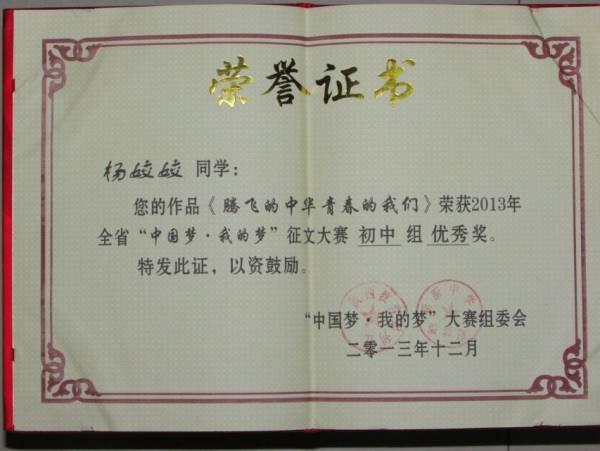 荣誉证书
杨姣姣 同学:
您的作品《腾飞的中华青春的我们》荣获2013年
全省“中国梦·我的梦”征文大赛 初中 组 优秀奖。
特发此证，以资鼓励。
“中国梦·我的梦”大赛组委会
二零一三年十二月